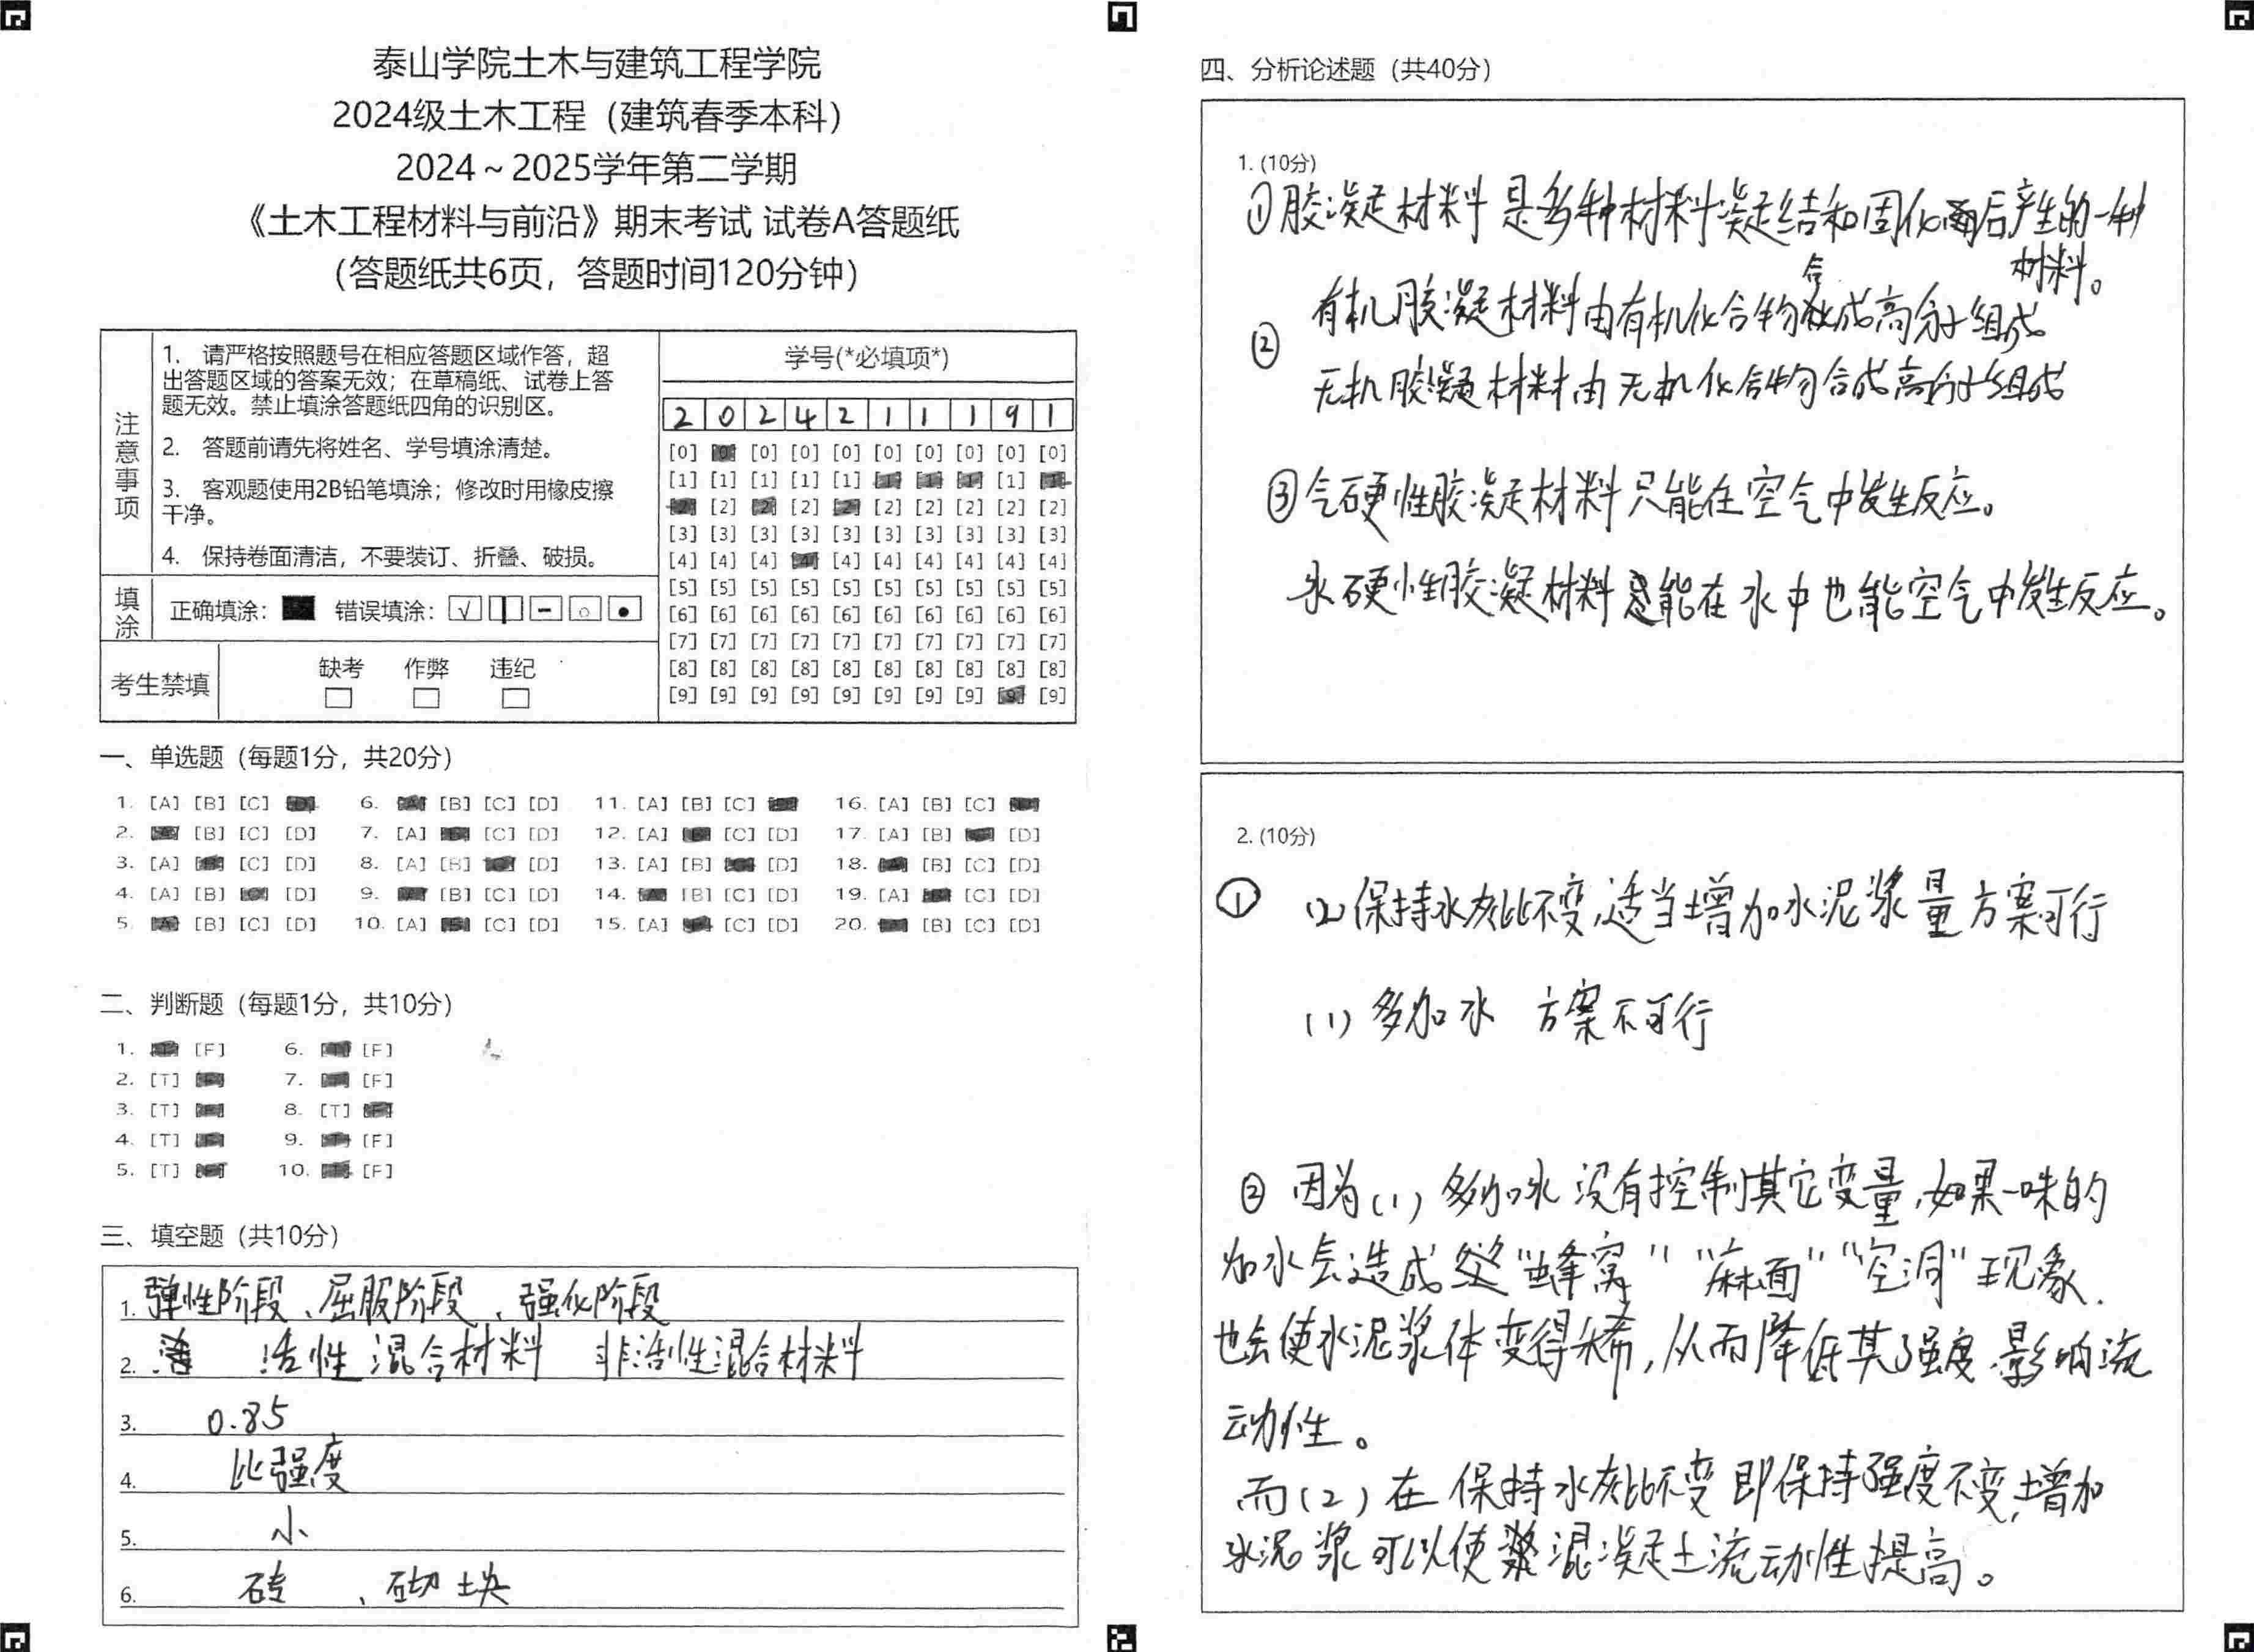 泰山学院土木与建筑工程学院
2024级土木工程（建筑春季本科）
2024～2025学年第二学期
《土木工程材料与前沿》期末考试 试卷A答题纸
（答题纸共6页，答题时间120分钟）
注意事项
1. 请严格按照题号在相应答题区域作答，超
出答题区域的答案无效；在草稿纸、试卷上答
题无效。禁止填涂答题纸四角的识别区。
2. 答题前请先将姓名、学号填涂清楚。
3. 客观题使用2B铅笔填涂；修改时用橡皮擦
干净。
4. 保持卷面清洁，不要装订、折叠、破损。
填涂 正确填涂： 错误填涂：
考生禁填 缺考 作弊 违纪
学号(*必填项*)
2 0 2 4 2 1 1 1 9 1
[0] [0] [0] [0] [0] [0] [0] [0] [0]
[1] [1] [1] [1] [1] [1]
[2] [2] [2] [2] [2] [2] [2]
[3] [3] [3] [3] [3] [3] [3] [3] [3] [3]
[4] [4] [4] [4] [4] [4] [4] [4] [4] [4]
[5] [5] [5] [5] [5] [5] [5] [5] [5] [5]
[6] [6] [6] [6] [6] [6] [6] [6] [6] [6]
[7] [7] [7] [7] [7] [7] [7] [7] [7] [7]
[8] [8] [8] [8] [8] [8] [8] [8] [8] [8]
[9] [9] [9] [9] [9] [9] [9] [9] [9] [9]
一、单选题（每题1分，共20分）
1. [A] [B] [C] 6. [B] [C] [D] 11. [A] [B] [C] 16. [A] [B] [C]
2. [B] [C] [D] 7. [A] [C] [D] 12. [A] [C] [D] 17. [A] [B] [D]
3. [A] [C] [D] 8. [A] [B] [D] 13. [A] [B] [D] 18. [B] [C] [D]
4. [A] [B] [D] 9. [B] [C] [D] 14. [B] [C] [D] 19. [A] [C] [D]
5. [B] [C] [D] 10. [A] [C] [D] 15. [A] [C] [D] 20. [B] [C] [D]
二、判断题（每题1分，共10分）
1. [F] 6. [F]
2. [T] 7. [F]
3. [T] 8. [T]
4. [T] 9. [F]
5. [T] 10. [F]
三、填空题（共10分）
1. 弹性阶段、屈服阶段、强化阶段
2. 活性混合材料 非活性混合材料
3. 0.85
4. 比强度
5. 小
6. 砖、砌块
四、分析论述题（共40分）
1. (10分)
①胶凝材料是多种材料凝结和固化后产生的一种
材料。
② 有机胶凝材料由有机化合物合成高分子组成
无机胶凝材料由无机化合物合成高分子组成
③气硬性胶凝材料只能在空气中发生反应。
水硬性胶凝材料能在水中也能空气中发生反应。
2. (10分)
① (2)保持水灰比不变,适当增加水泥浆量方案可行
(1)多加水 方案不可行
② 因为(1)多加水没有控制其它变量,如果一味的
加水会造成“蜂窝”“麻面”“空洞”现象.
也会使水泥浆体变得稀,从而降低其强度.影响流
动性。
而(2)在保持水灰比不变即保持强度不变,增加
水泥浆可以使混凝土流动性提高。